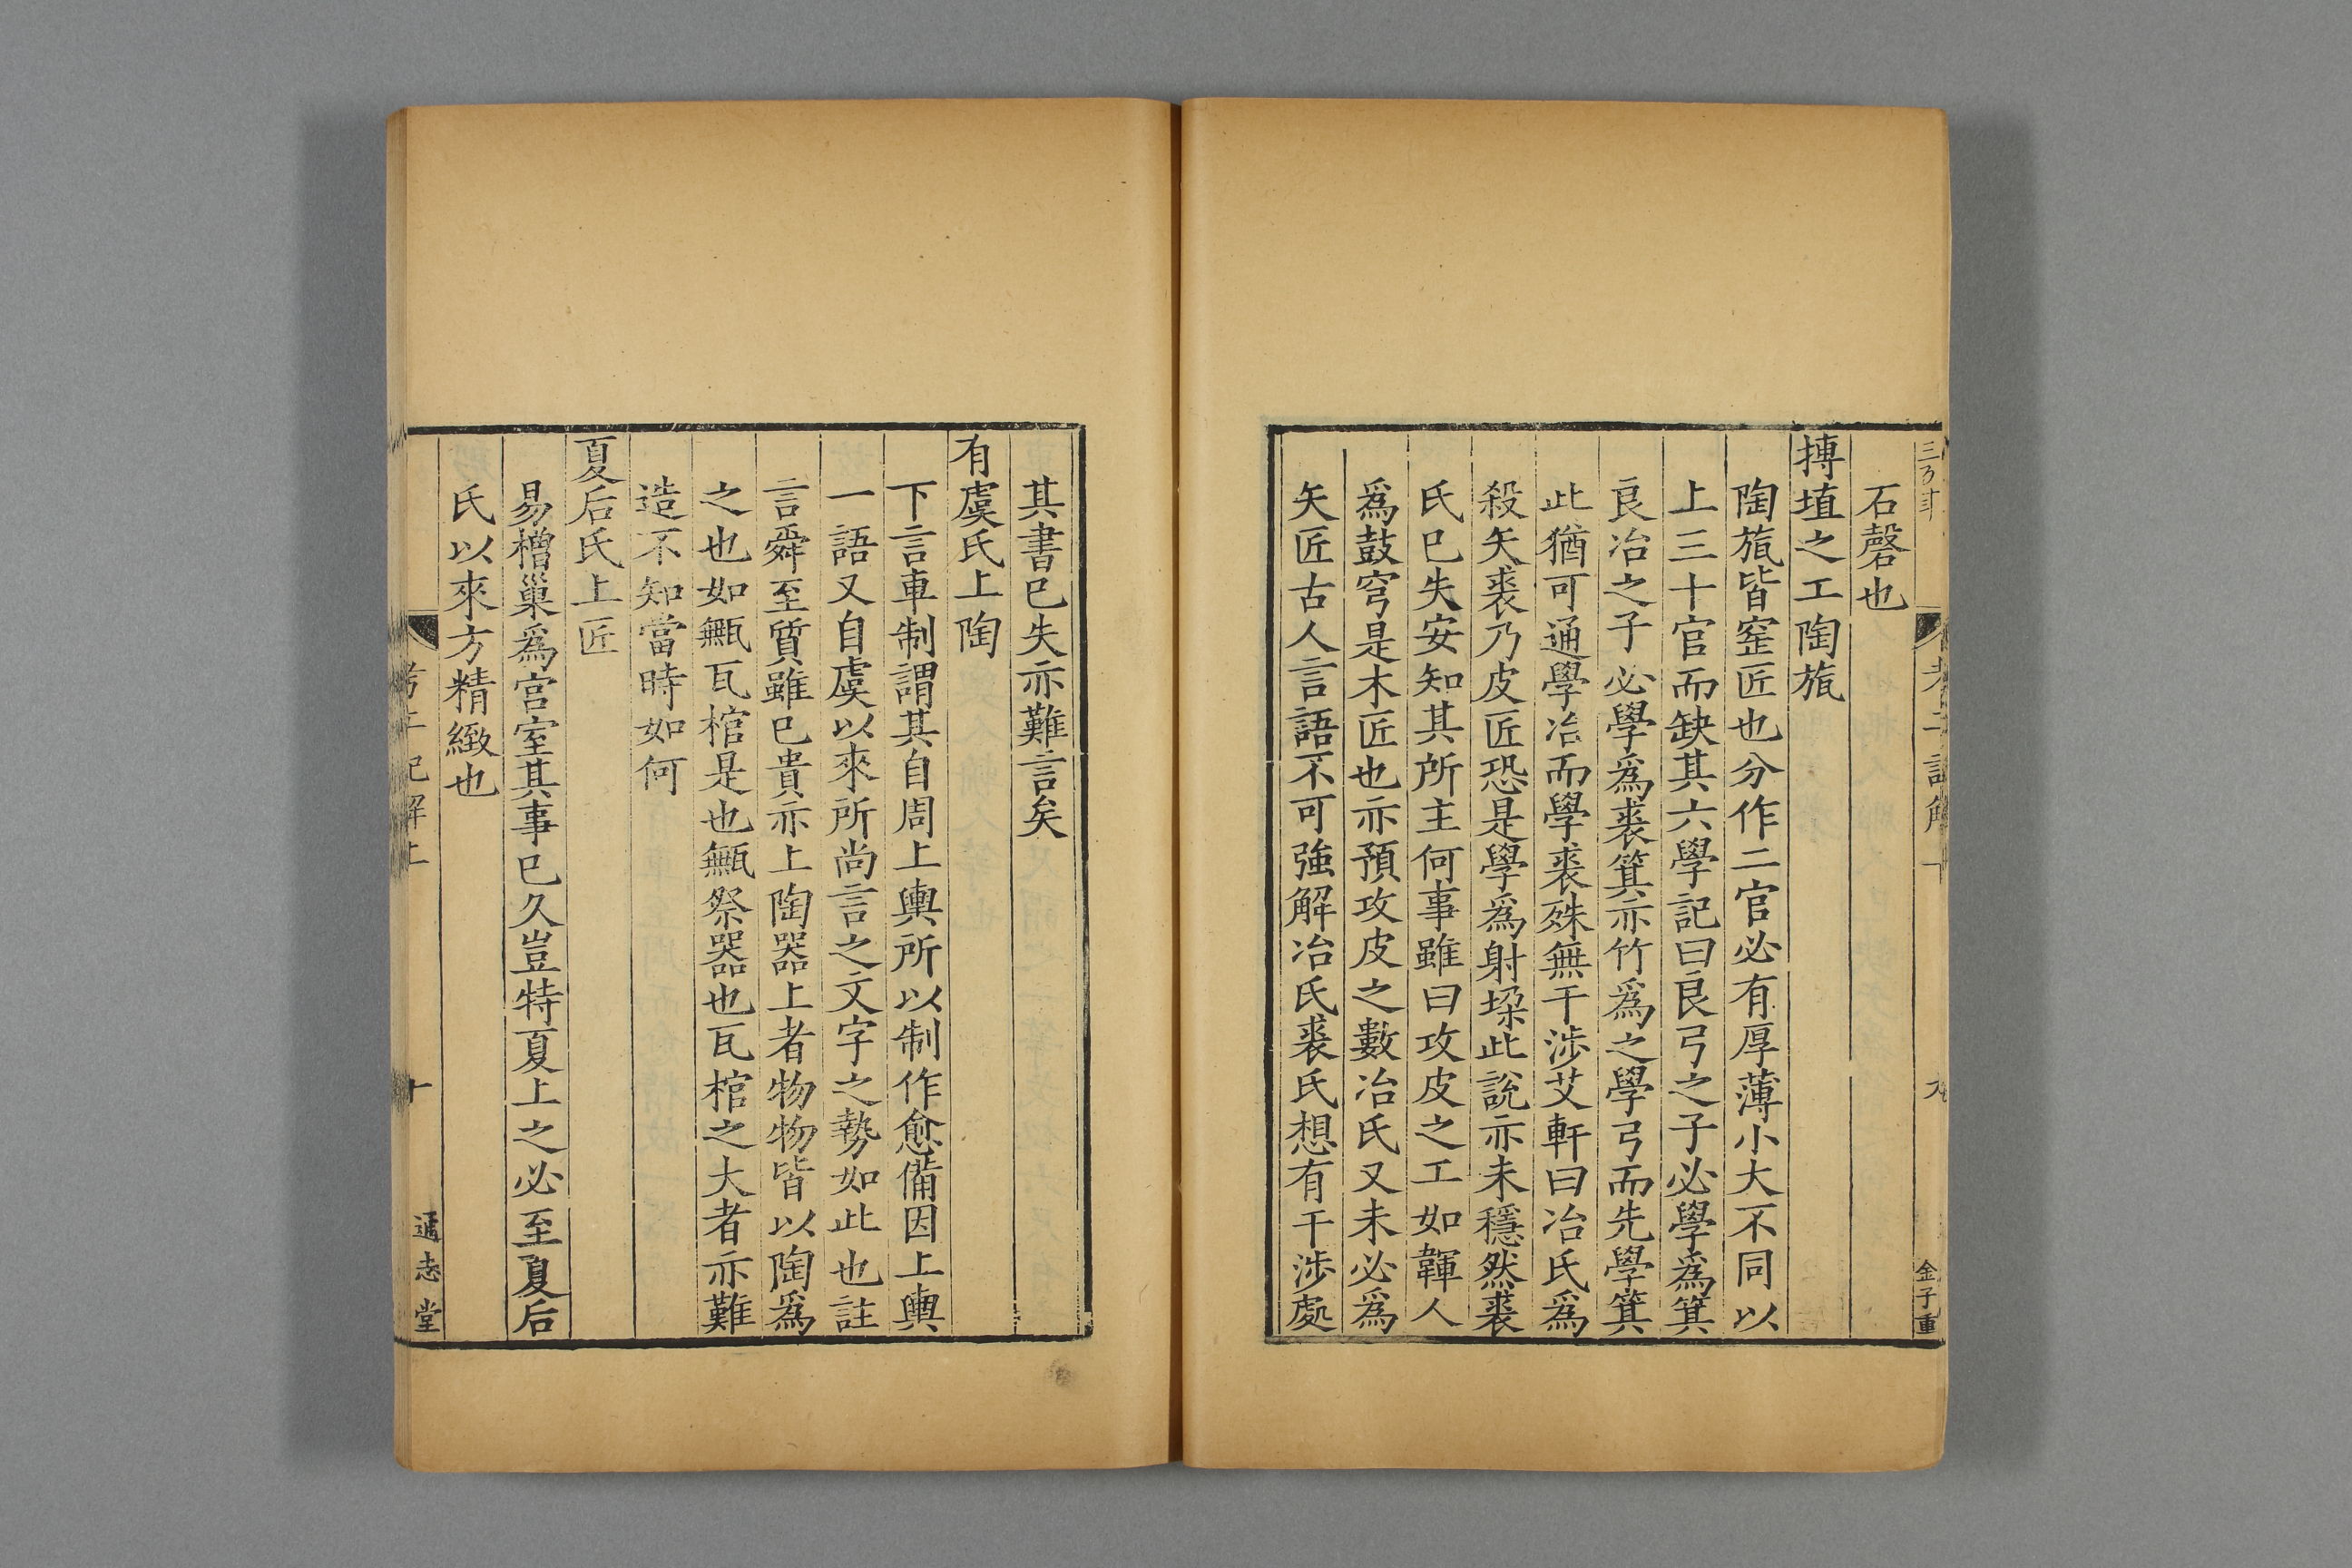 石磬也
搏埴之工陶旊
陶旊皆窑匠也分作二官必有厚薄小大不同以
上三十官而缺其六學記曰良弓之子必學爲箕
良冶之子必學爲裘箕亦竹爲之學弓而先學箕
此猶可通學冶而學裘殊無干涉艾軒曰冶氏爲
殺矢裘乃皮匠恐是學爲射垛此說亦未穩然裘
氏已失安知其所主何事雖曰攻皮之工如韗人
爲鼓穹是木匠也亦預攻皮之數冶氏又未必爲
矢匠古人言語不可強解冶氏裘氏想有干涉處
金子重
其書已失亦難言矣
有虞氏上陶
下言車制謂其自周上輿所以制作愈備因上輿
一語又自虞以來所尚言之文字之勢如此也註
言舜至質雖已貴亦上陶器上者物物皆以陶爲
之也如甒瓦棺是也甒祭器也瓦棺之大者亦難
造不知當時如何
夏后氏上匠
易橧巢爲宮室其事已久豈特夏上之必至夏后
氏以來方精緻也
考工記解上
十
通志堂